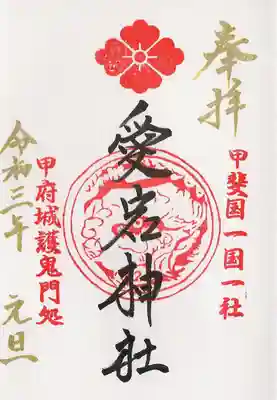 奉拝
甲斐国一国一社
愛宕神社
甲府城護鬼門処
令和三年 元旦